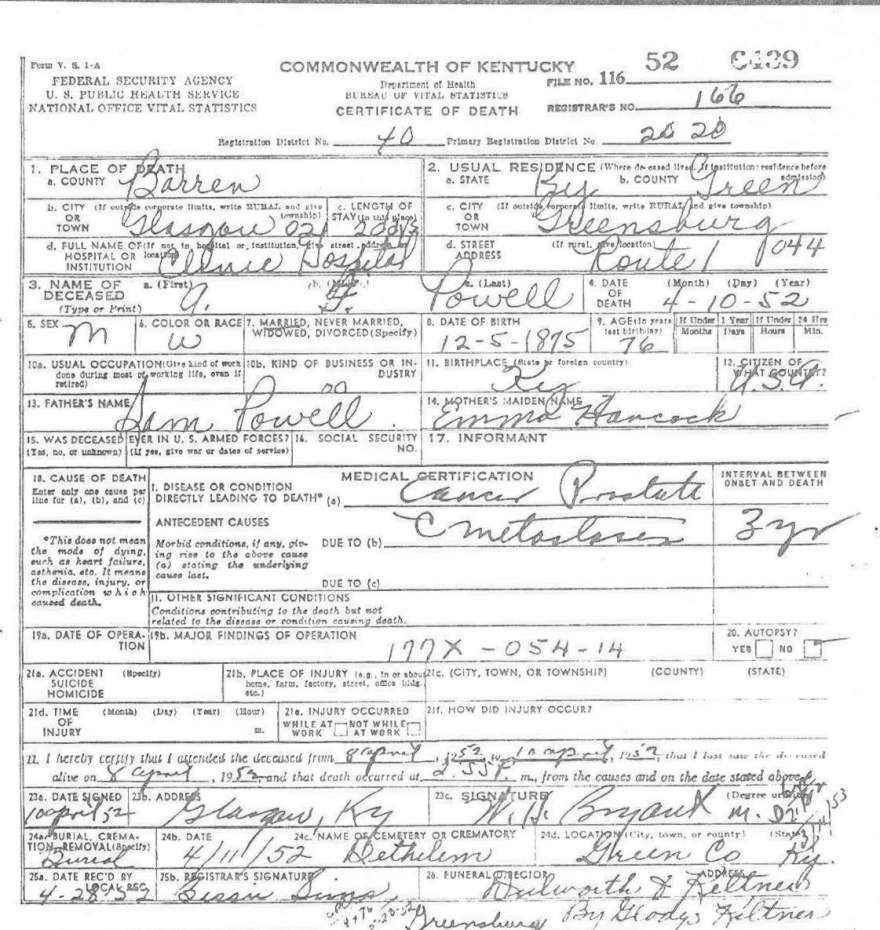 Form V. S. 1-A
FEDERAL SECURITY AGENCY
U. S. PUBLIC HEALTH SERVICE
NATIONAL OFFICE VITAL STATISTICS
COMMONWEALTH OF KENTUCKY
Department of Health
BUREAU OF VITAL STATISTICS
CERTIFICATE OF DEATH
FILE NO. 116 52
REGISTRAR'S NO. 166
Registration District No. 40 Primary Registration District No 2020
1. PLACE OF DEATH
a. COUNTY Barren
2. USUAL RESIDENCE (Where deceased lived. If institution: residence before admission)
a. STATE Ky b. COUNTY Green
b. CITY (If outside corporate limits, write RURAL and give township)
OR
TOWN Glasgow
c. LENGTH OF STAY (in this place)
c. CITY (If outside corporate limits, write RURAL and give township)
OR
TOWN Greensburg
d. FULL NAME OF (If not in hospital or institution, give street address or location)
HOSPITAL OR
INSTITUTION Clinic Hospital
d. STREET ADDRESS (If rural, give location)
Route 1 044
3. NAME OF DECEASED
(Type or Print)
a. (First) b. (Middle) c. (Last)
Powell
4. DATE OF DEATH (Month) (Day) (Year)
4-10-52
5. SEX M
6. COLOR OR RACE W
7. MARRIED, NEVER MARRIED, WIDOWED, DIVORCED (Specify)
8. DATE OF BIRTH 12-5-1875
9. AGE (In years last birthday) 76
If Under 1 Year Months Days
If Under 24 Hrs Hours Min.
10a. USUAL OCCUPATION (Give kind of work done during most of working life, even if retired)
10b. KIND OF BUSINESS OR INDUSTRY
11. BIRTHPLACE (State or foreign country)
Ky
12. CITIZEN OF WHAT COUNTRY?
USA.
13. FATHER'S NAME Sam Powell
14. MOTHER'S MAIDEN NAME Emma Hancock
15. WAS DECEASED EVER IN U. S. ARMED FORCES?
(Yes, no, or unknown) (If yes, give war or dates of service)
16. SOCIAL SECURITY NO.
17. INFORMANT
18. CAUSE OF DEATH
Enter only one cause per line for (a), (b), and (c)
*This does not mean the mode of dying, such as heart failure, asthenia, etc. It means the disease, injury, or complication which caused death.
MEDICAL CERTIFICATION
INTERVAL BETWEEN ONSET AND DEATH
I. DISEASE OR CONDITION
DIRECTLY LEADING TO DEATH* (a) Cancer Prostate
ANTECEDENT CAUSES
Morbid conditions, if any, giving rise to the above cause (a) stating the underlying cause last.
DUE TO (b) C metastases 3 yr
DUE TO (c)
II. OTHER SIGNIFICANT CONDITIONS
Conditions contributing to the death but not related to the disease or condition causing death.
19a. DATE OF OPERATION
19b. MAJOR FINDINGS OF OPERATION
177X - 054-14
20. AUTOPSY?
YES NO
21a. ACCIDENT (Specify)
SUICIDE
HOMICIDE
21b. PLACE OF INJURY (e.g., in or about home, farm, factory, street, office bldg. etc.)
21c. (CITY, TOWN, OR TOWNSHIP) (COUNTY) (STATE)
21d. TIME OF INJURY (Month) (Day) (Year) (Hour) m.
21e. INJURY OCCURRED
WHILE AT WORK NOT WHILE AT WORK
21f. HOW DID INJURY OCCUR?
22. I hereby certify that I attended the deceased from 8 april, 1952, to 10 april, 1952, that I last saw the deceased
alive on 8 april, 1952, and that death occurred at m., from the causes and on the date stated above.
23a. DATE SIGNED 10 april 52
23b. ADDRESS Glasgow, Ky
23c. SIGNATURE (Degree or title)
Bryant M. D.
24a. BURIAL, CREMATION, REMOVAL (Specify) Burial
24b. DATE 4/11/52
24c. NAME OF CEMETERY OR CREMATORY Bethlehem
24d. LOCATION (City, town, or county) (State)
Green Co Ky.
25a. DATE REC'D BY LOCAL REG. 4-28-52
25b. REGISTRAR'S SIGNATURE Bessie Sims
26. FUNERAL DIRECTOR ADDRESS
Greensburg By Gladys Keltner